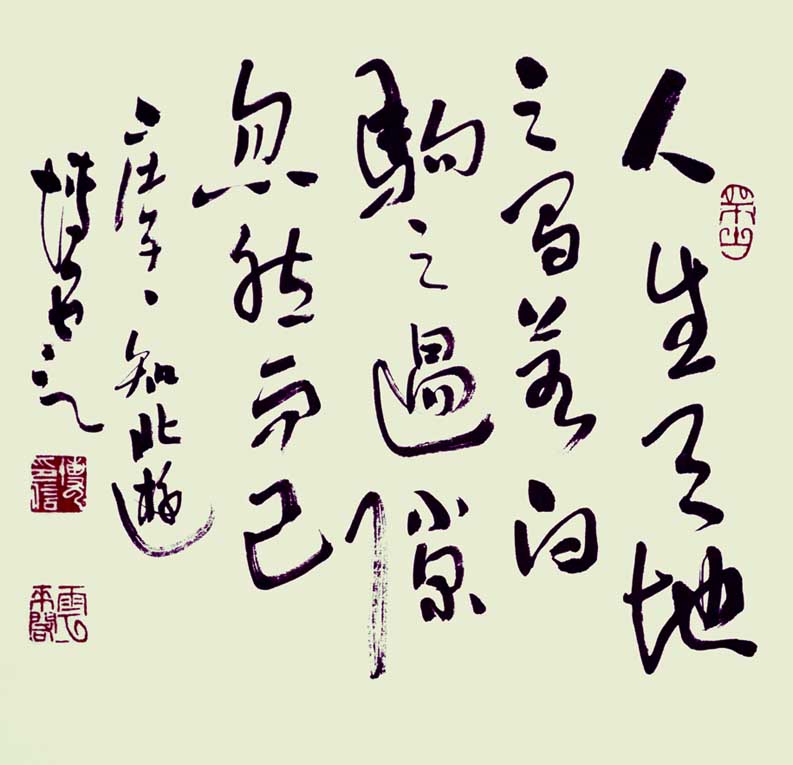 人生天地
之間若白
駒之過隙
忽然而已
庄子、知北遊
雲来閣